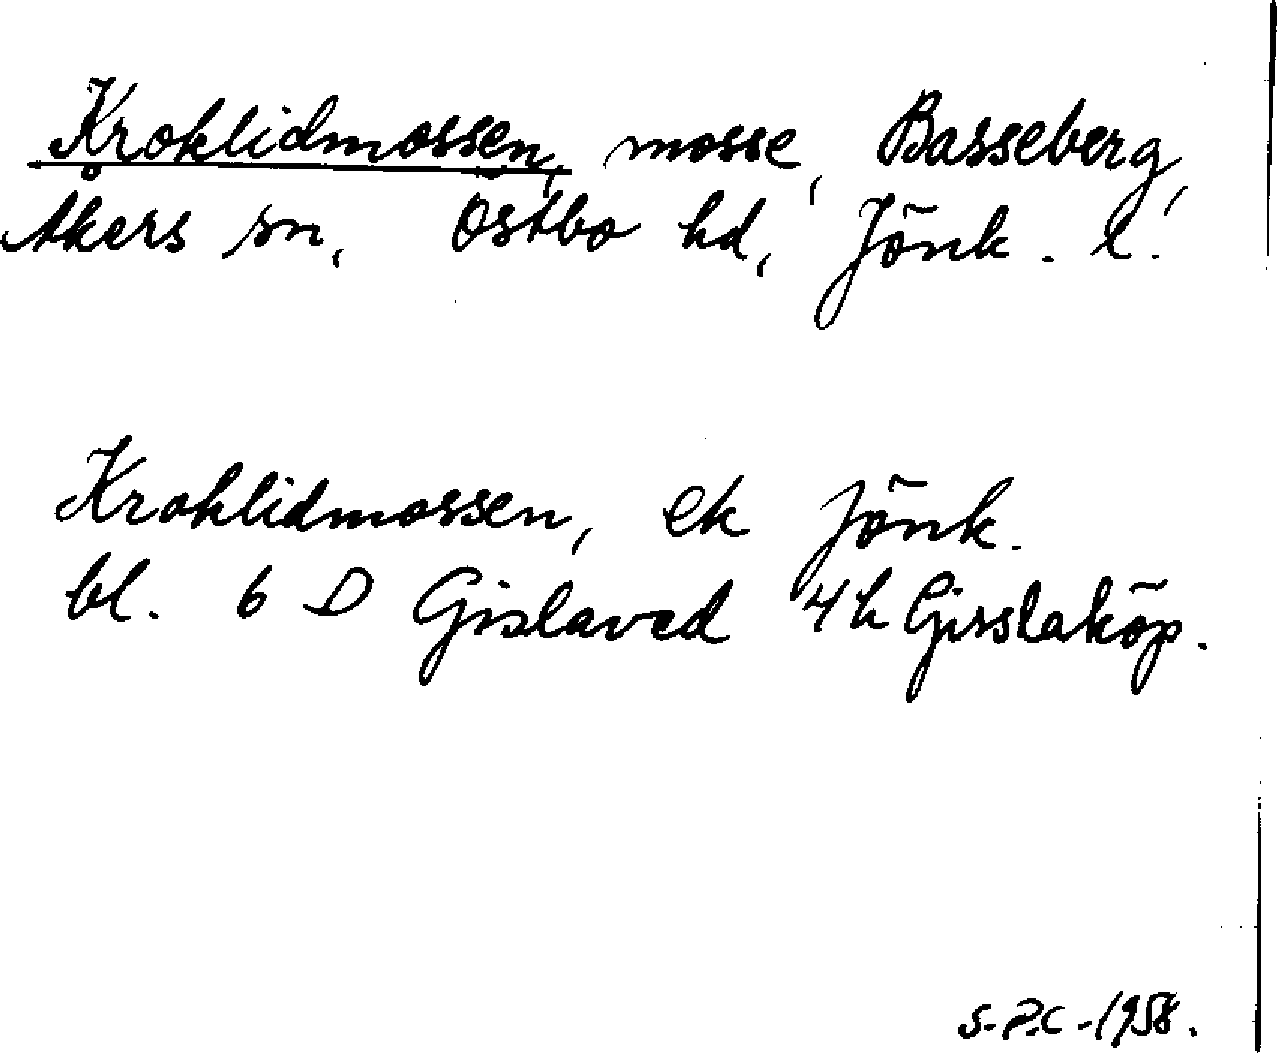 Kroklidmossen, mosse, Basseberg,
Åkers sn, Östbo hd, Jönk. l.
Kroklidmossen, ek Jönk.
bl. 6 D Gislaved 4h Gisslaköp.
S-P.C-1958.